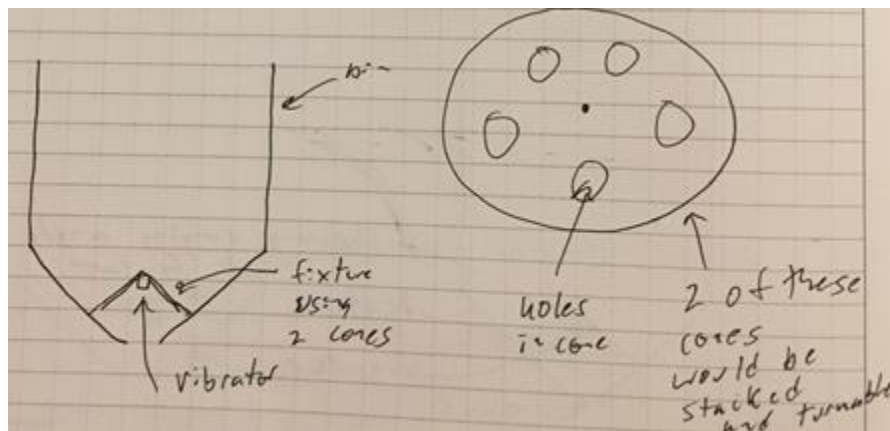 bin
fixture
using
2 cones
vibrator
holes
in cone
2 of these
cones
would be
stacked
and turnable